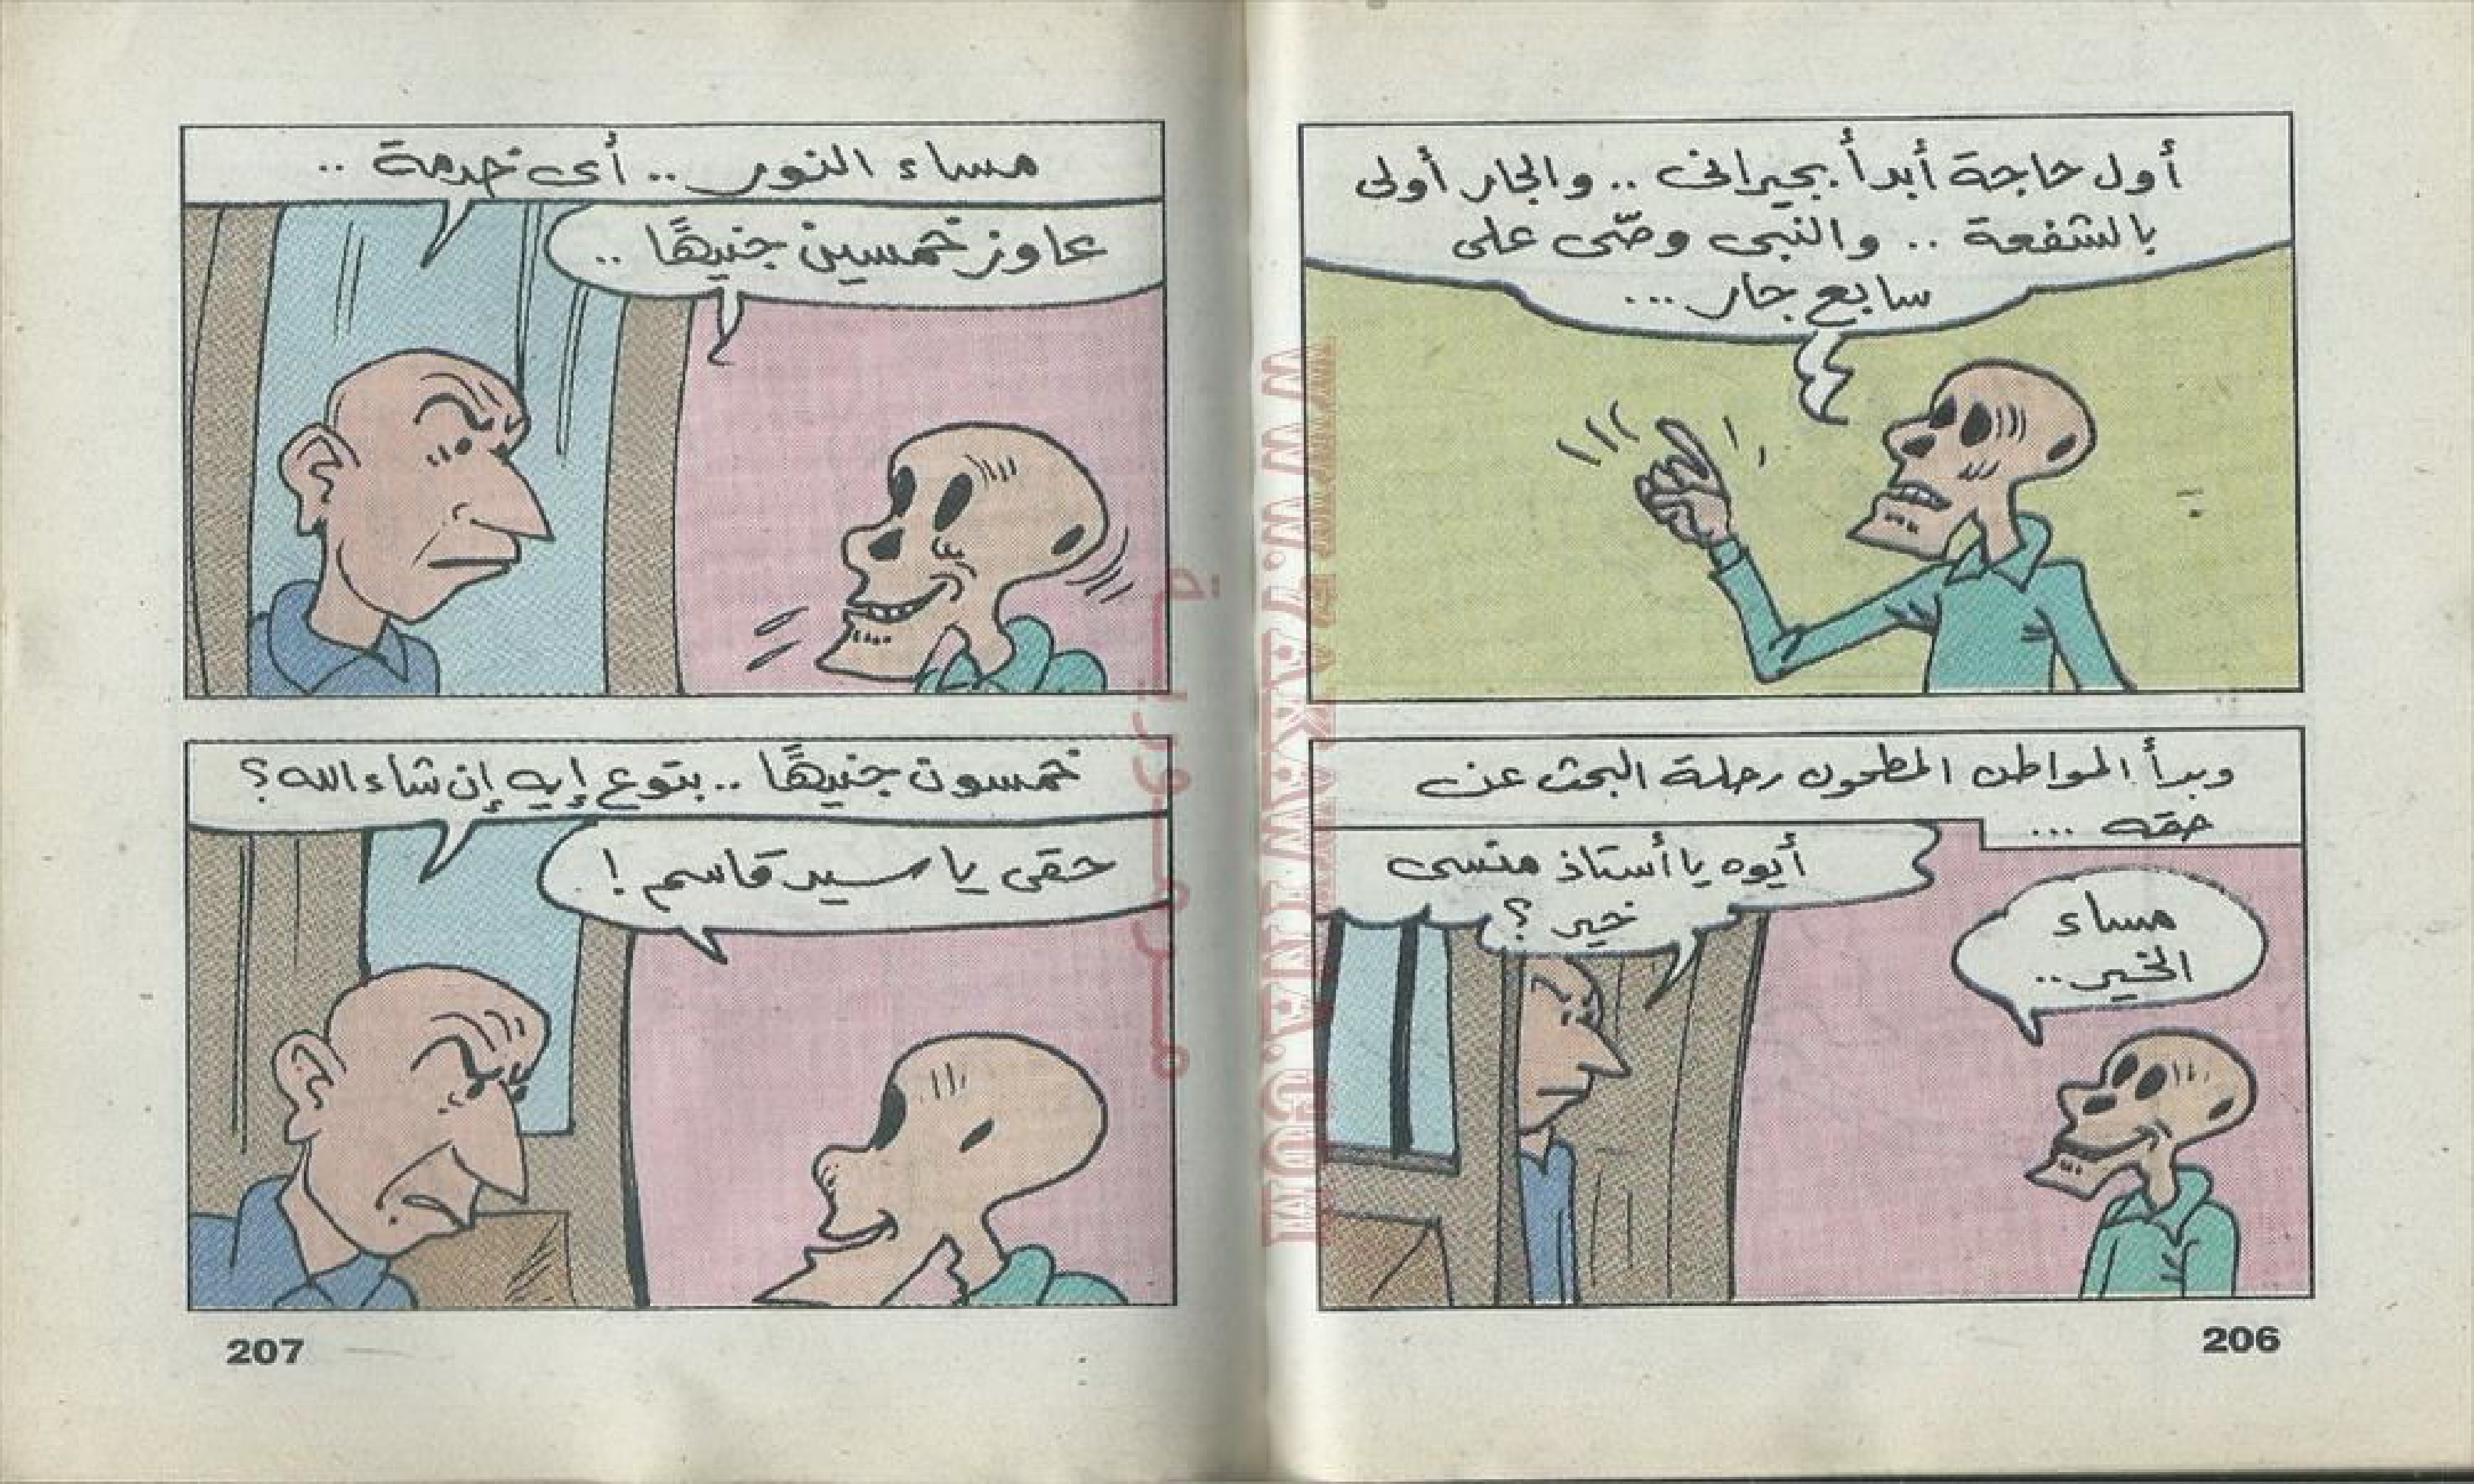 أول حاجة أبدأ بجيرانى .. والجار أولى
بالشفعة .. والنبى وصّى على
سابع جار ...
وبدأ المواطن المطحون رحلة البحث عن
حقه ...
مساء
الخير ..
أيوه يا أستاذ منسى
خير ؟
206
مساء النور .. أى خدمة ..
عاوز خمسين جنيهًا ..
خمسون جنيهًا .. بتوع إيه إن شاء الله ؟
حقى يا سيد قاسم !
207